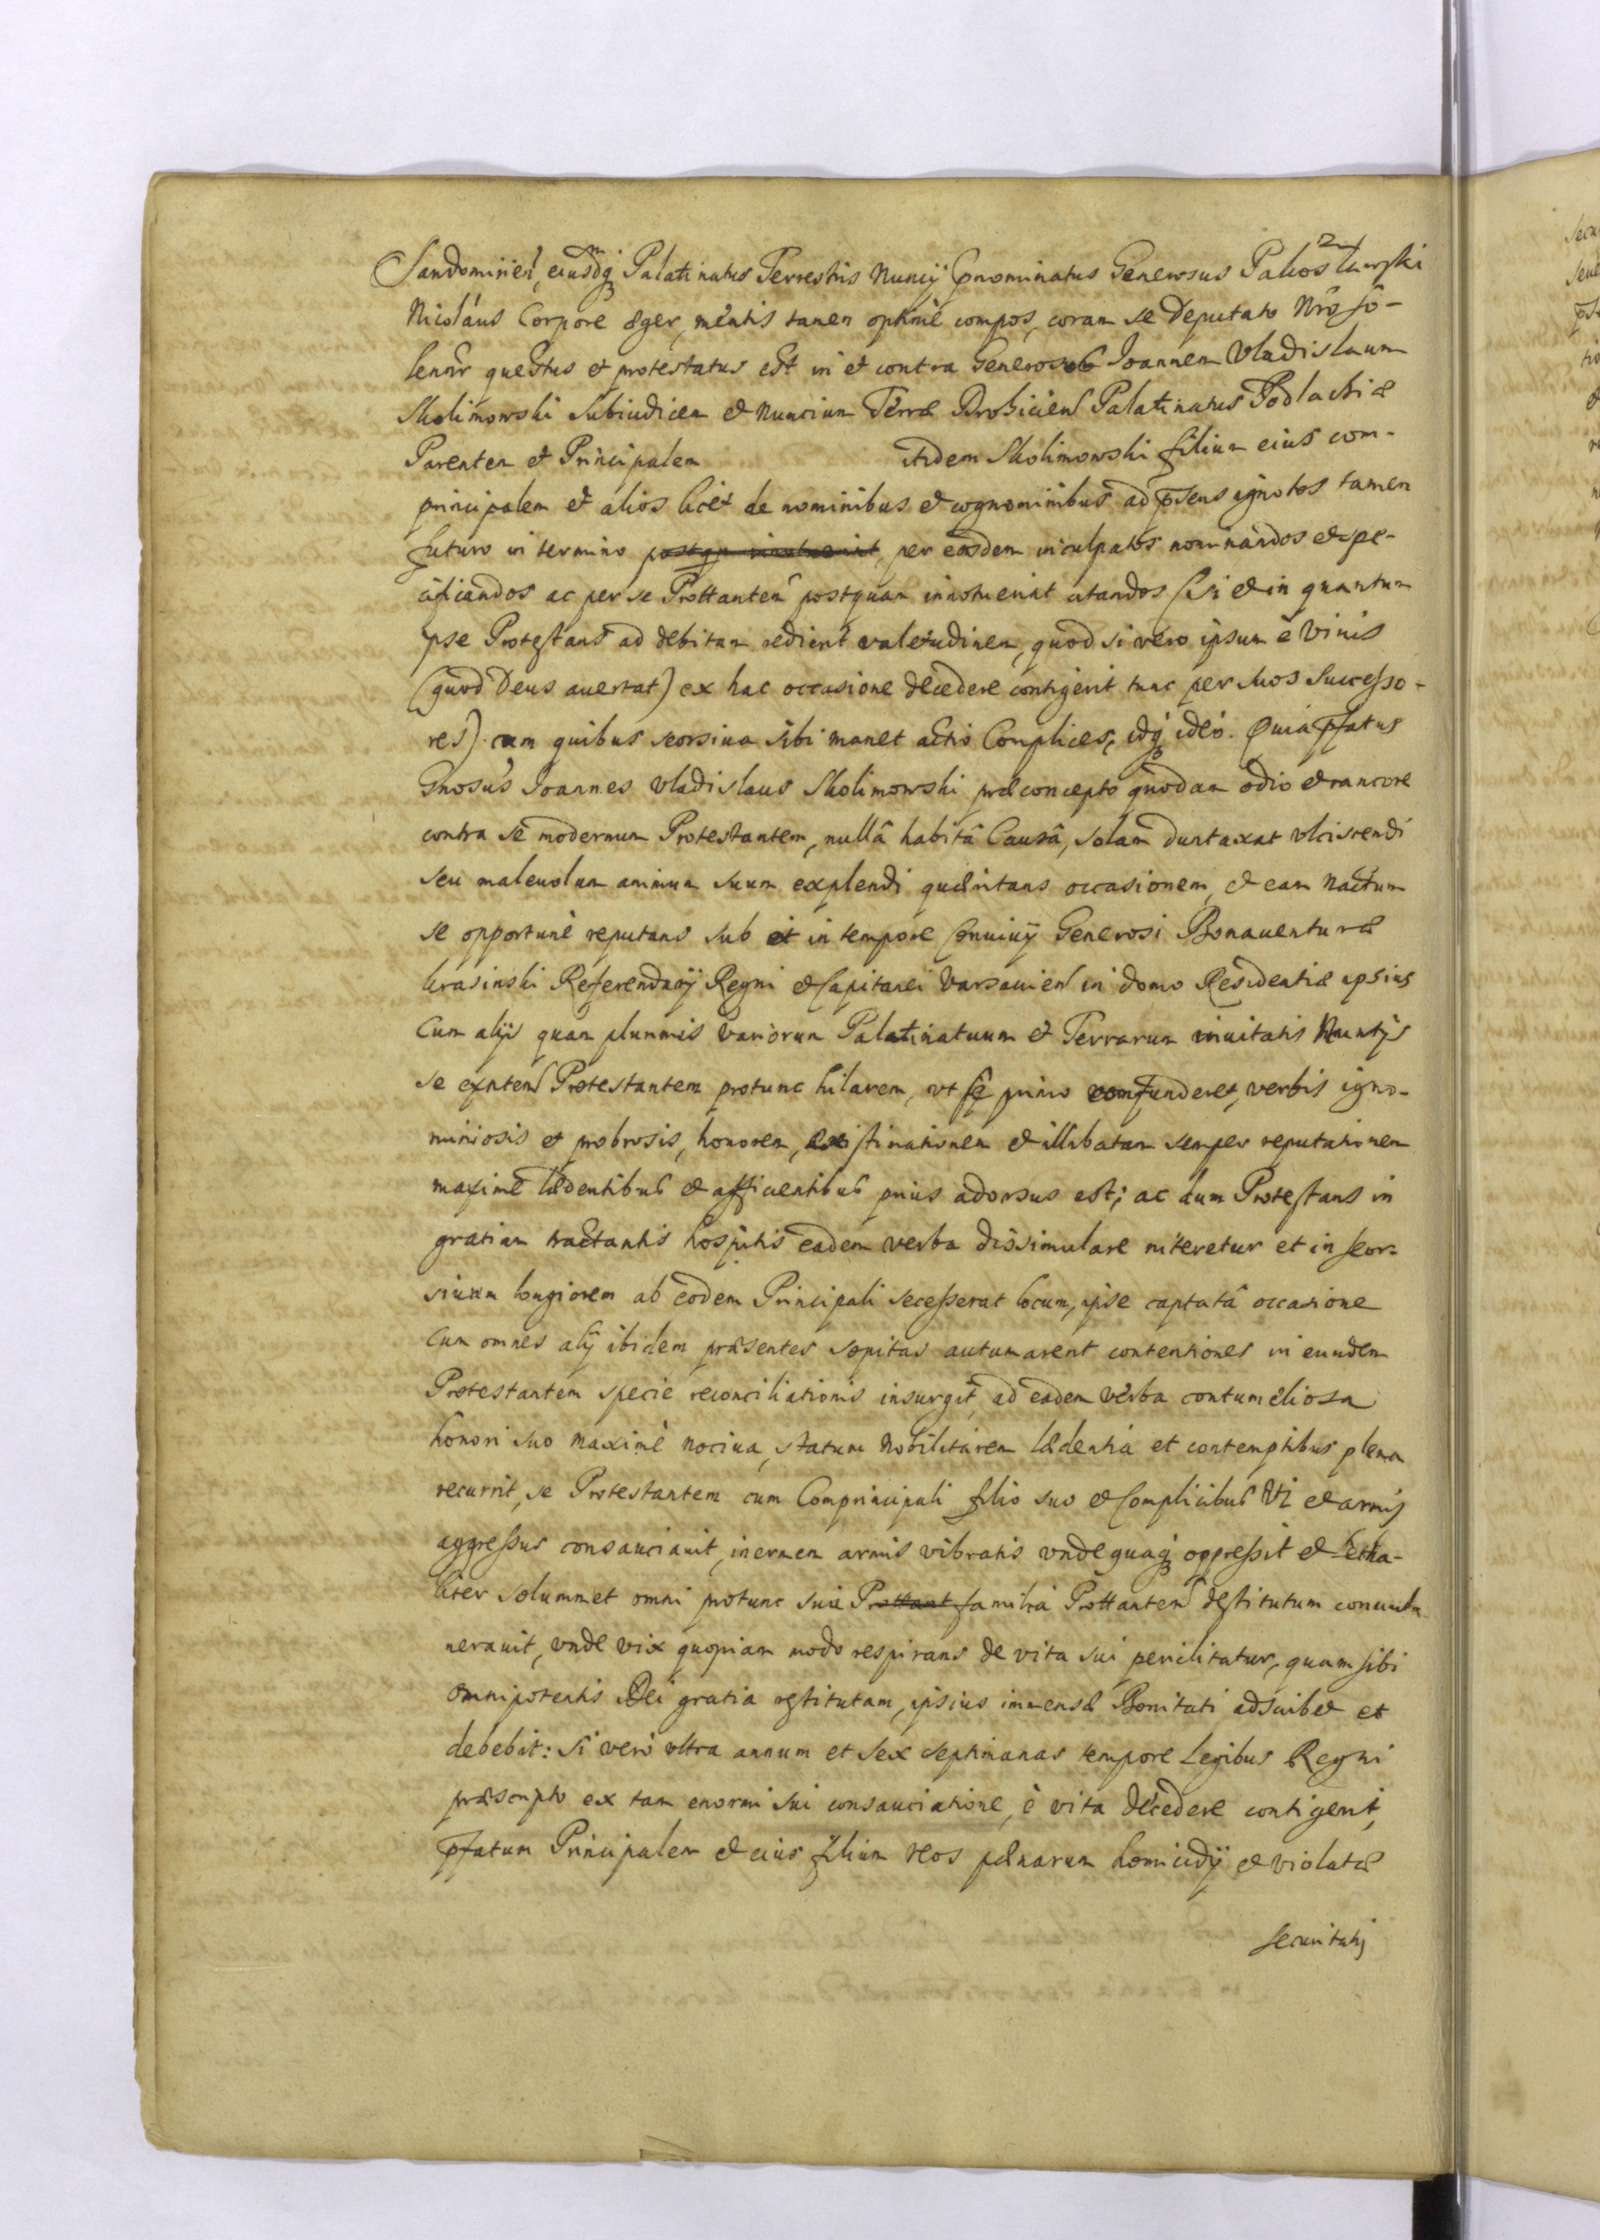 Sandomirien, eiusdq Palatinatus Terrestris Nuncÿ Cōnominatus Generosus Pakoslawski
Nicolaus Corpore æger, mentis tamen optimè compos, coram se Deputato Nrō so-
lenr̄ questus et protestatus est in et contra Generosos Joannem Vladislaum
Skolimowski Subiudicem et Nuncium Terræ Drohiciens Palatinatus Podlachiæ
Parentem et Principalem itidem Skolimowski filium eius com-
principalem et alios licet de nominibus et cognominibus ad p̄sens ignotos tamen
futuro in termino postqm innotuerint, per eosdem inculpatos nominandos et spe-
cificandos ac per se Prottantem postquam innotuerint citandos (si et in quantum
ipse Protestans ad debitam redierit valetudinem, quod si vero ipsum è vivis
(quod Deus auertat) ex hac occasione decedere contigerit tunc per suos Successo-
res) cum quibus seorsiua sibi manet actio Complices, idq ideo. Quia p̄fatus
Gnosus Joannes Vladislaus Skolimowski præconcepto quodam odio et rancore
contra se modernum Protestantem, nullâ habitâ Causâ, solam duntaxat vlciscendi
seu maleuolum animum suum explendi quæritans occasionem, et eam nactum
se opportunè reputans sub et in tempore Conuiuÿ Generosi Bonauenturæ
Krasinski Referendarÿ Regni et Capitanei Varsauien in domo Residentiæ ipsius
Cum alÿs quam plurimis variorum Palatinatuum et Terrarum inuitatis Nuntÿs
se exnten Protestantem protunc hilarem, vt se primo confunderet, verbis igno-
miniosis et probrosis, honorem, existimationem et illibatam semper reputationem
maximè lædentibus et afficientibus prius adorsus est; ac dum Protestans in
gratiam tractantis hospitis eadem verba dissimulare niteretur et in seor-
siuum longiorem ab eodem Principali secesserat locum, ipse captatâ occasione
Cum omnes alÿ ibidem præsentes sopitas autumarent contentiones in eundem
Protestantem specie reconciliationis insurgit, ad eadem verba contumeliosa
honori suo maximè nociua, statum Nobilitarem lædentia et contemptibus plena
recurrit, se Protestantem cum Comprincipali filio suo et Complicibus Vi et armis
aggressus consauciauit, inermem armis vibratis vndequaq oppressit et letha-
liter solummet omni protunc sui Prottant familia Prottantem destitutum conuul-
nerauit, vnde vix quopiam modo respirans de vita sui periclitatur, quam sibi
Omnipotentis Dei gratia restitutam, ipsius immensæ Bonitati adscribet et
debebit: Si verò vltra annum et sex septimanas tempore Legibus Regni
præscripto ex tam enormi sui consauciatione, è vita decedere contigerit,
p̄fatum Principalem et eius filium reos pænarum homicidÿ et violatæ
securitatis